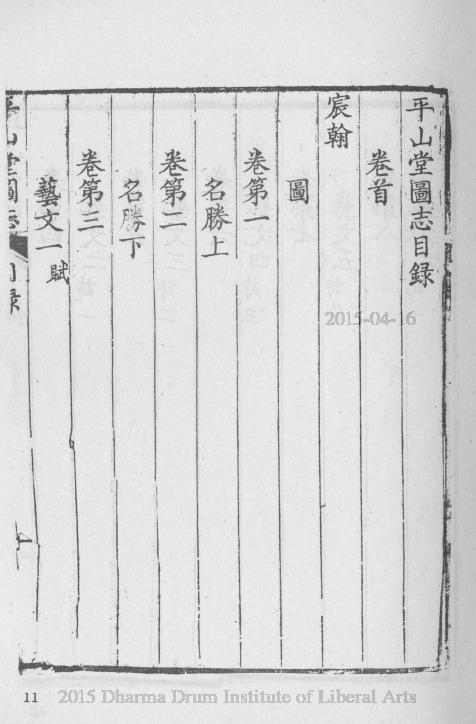 平山堂圖志目録
卷首
宸翰
圖
卷第一
名勝上
卷第二
名勝下
卷第三
藝文一 賦
平山堂圖志 目録
2015-04-16
11 2015 Dharma Drum Institute of Liberal Arts